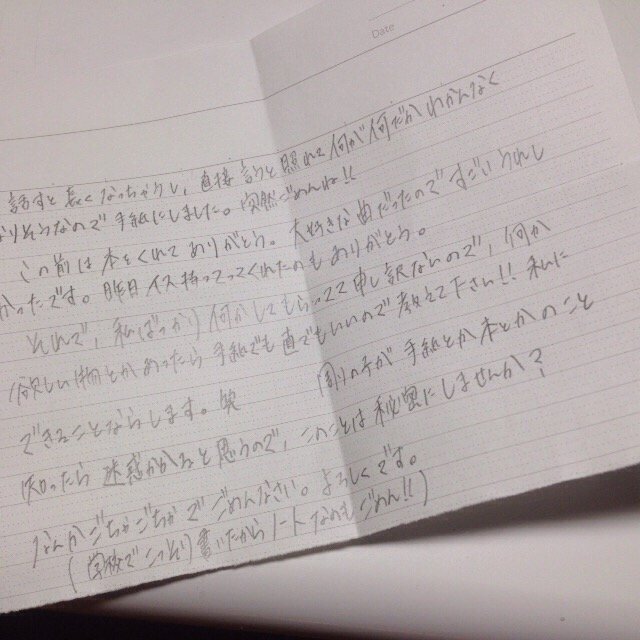 Date
話すと長くなっちゃうし、直接言うと照れて何が何だかわかんなく
なりそうなので手紙にしました。突然ごめんね!!
この前は本をくれてありがとう。大好きな曲だったのですごいうれし
かったです。昨日イス持ってってくれたのもありがとう。
そんで、私ばっかり何かしてもらってて申し訳ないので、何か
欲しい物とかあったら手紙でも直でもいいので教えて下さい!! 私に
できることならします。笑 周りの子が手紙とか本とかのこと
知ったら迷惑かかると思うので、このことは秘密にしませんか?
なんかごちゃごちゃでごめんなさい。よろしくです。
(でこっそり書いたからノートなのもごめん!!)